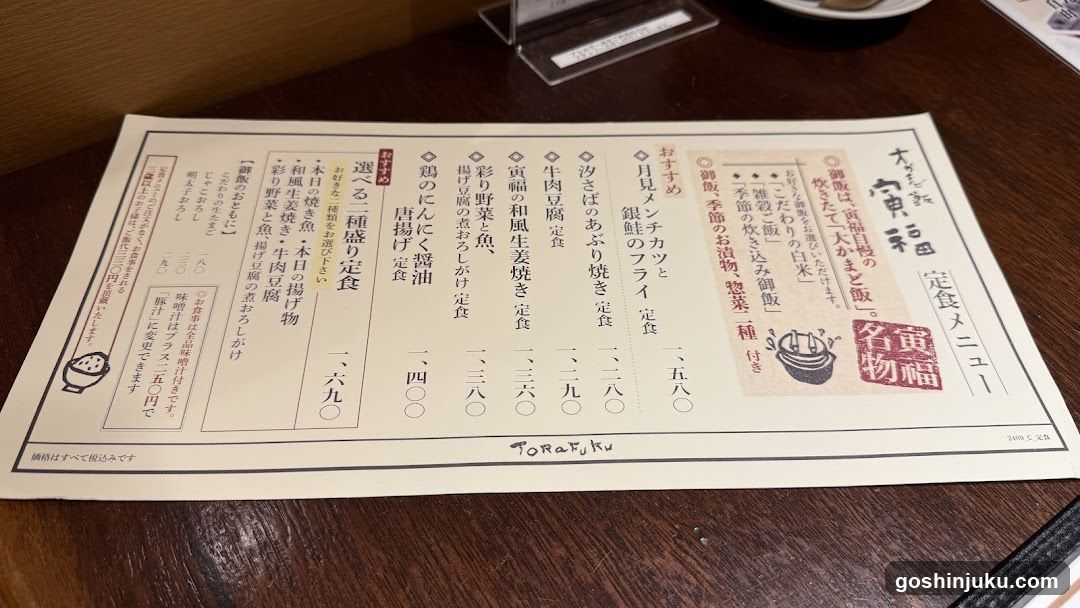 大かまど飯
寅福
定食メニュー
◎御飯は、寅福自慢の
炊きたて「大かまど飯」。
お好きな御飯をお選びいただけます。
◆「こだわりの白米」
◆「雑穀ご飯」
◆「季節の炊き込み御飯」
◎御飯、季節のお漬物、惣菜二種 付き
寅福
名物
おすすめ
◇月見メンチカツと
銀鮭のフライ 定食 一、五八〇
◇汐さばのあぶり焼き 定食 一、二八〇
◇牛肉豆腐 定食 一、二九〇
◇寅福の和風生姜焼き 定食 一、三六〇
◇彩り野菜と魚、
揚げ豆腐の煮おろしがけ 定食 一、三八〇
◇鶏のにんにく醤油
唐揚げ 定食 一、四〇〇
おすすめ
選べる二種盛り定食 一、六九〇
お好きな二種類をお選び下さい
・本日の焼き魚 ・本日の揚げ物
・和風生姜焼き ・牛肉豆腐
・彩り野菜と魚、揚げ豆腐の煮おろしがけ
【御飯のおともに】
こだわりの生たまご 一八〇
じゃこおろし 三三〇
明太子おろし 一九〇
◎お食事は全品味噌汁付きです。
味噌汁はプラス二五〇円で
「豚汁」に変更できます
定食メニューのご注文がなく、お食事をされる
二歳以上のお子様は、ご飯代三三〇円を頂戴いたします。
価格はすべて税込みです
TORAFUKU
2409_C_定食
goshinjuku.com